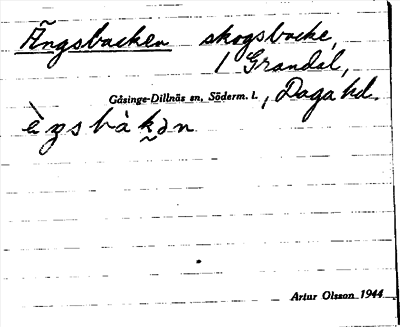 Ängsbacken skogsbacke,
/ Grandal,
Gåsinge-Dillnäs sn, Söderm. l., Daga hd.
ὲŋsbὰk̬ən
Artur Olsson 1944